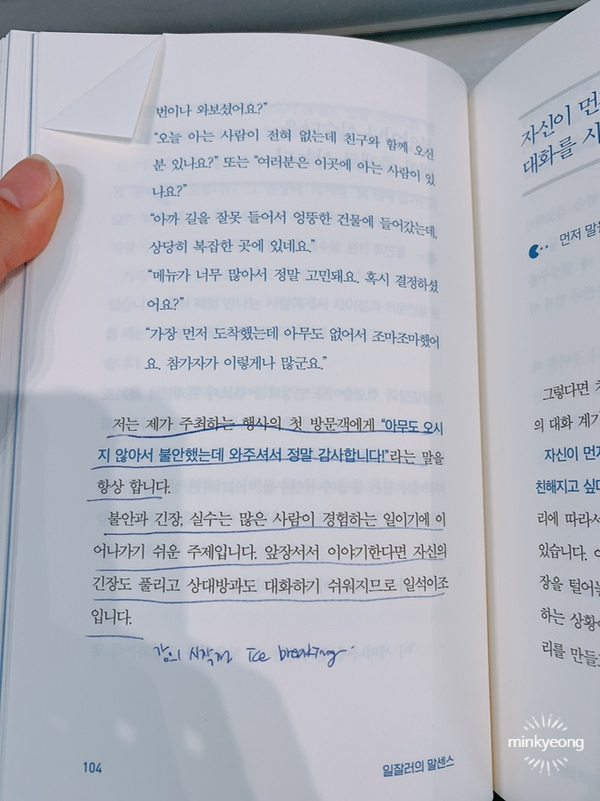 번이나 와보셨어요?”
“오늘 아는 사람이 전혀 없는데 친구와 함께 오신
분 있나요?” 또는 “여러분은 이곳에 아는 사람이 있
나요?”
“아까 길을 잘못 들어서 엉뚱한 건물에 들어갔는데,
상당히 복잡한 곳에 있네요.”
“메뉴가 너무 많아서 정말 고민돼요. 혹시 결정하셨
어요?”
“가장 먼저 도착했는데 아무도 없어서 조마조마했어
요. 참가자가 이렇게나 많군요.”
저는 제가 주최하는 행사의 첫 방문객에게 “아무도 오시
지 않아서 불안했는데 와주셔서 정말 감사합니다!”라는 말을
항상 합니다.
불안과 긴장, 실수는 많은 사람이 경험하는 일이기에 이
어나가기 쉬운 주제입니다. 앞장서서 이야기한다면 자신의
긴장도 풀리고 상대방과도 대화하기 쉬워지므로 일석이조
입니다.
강의 시작전 Ice breaking
104
일잘러의 말센스
자신이 먼저
대화를 시
먼저 말을
그렇다면
의 대화 계기
자신이 먼저
친해지고 싶다
리에 따라서
있습니다.
장을 털어놓
하는 상황
리를 만들
minkyeong